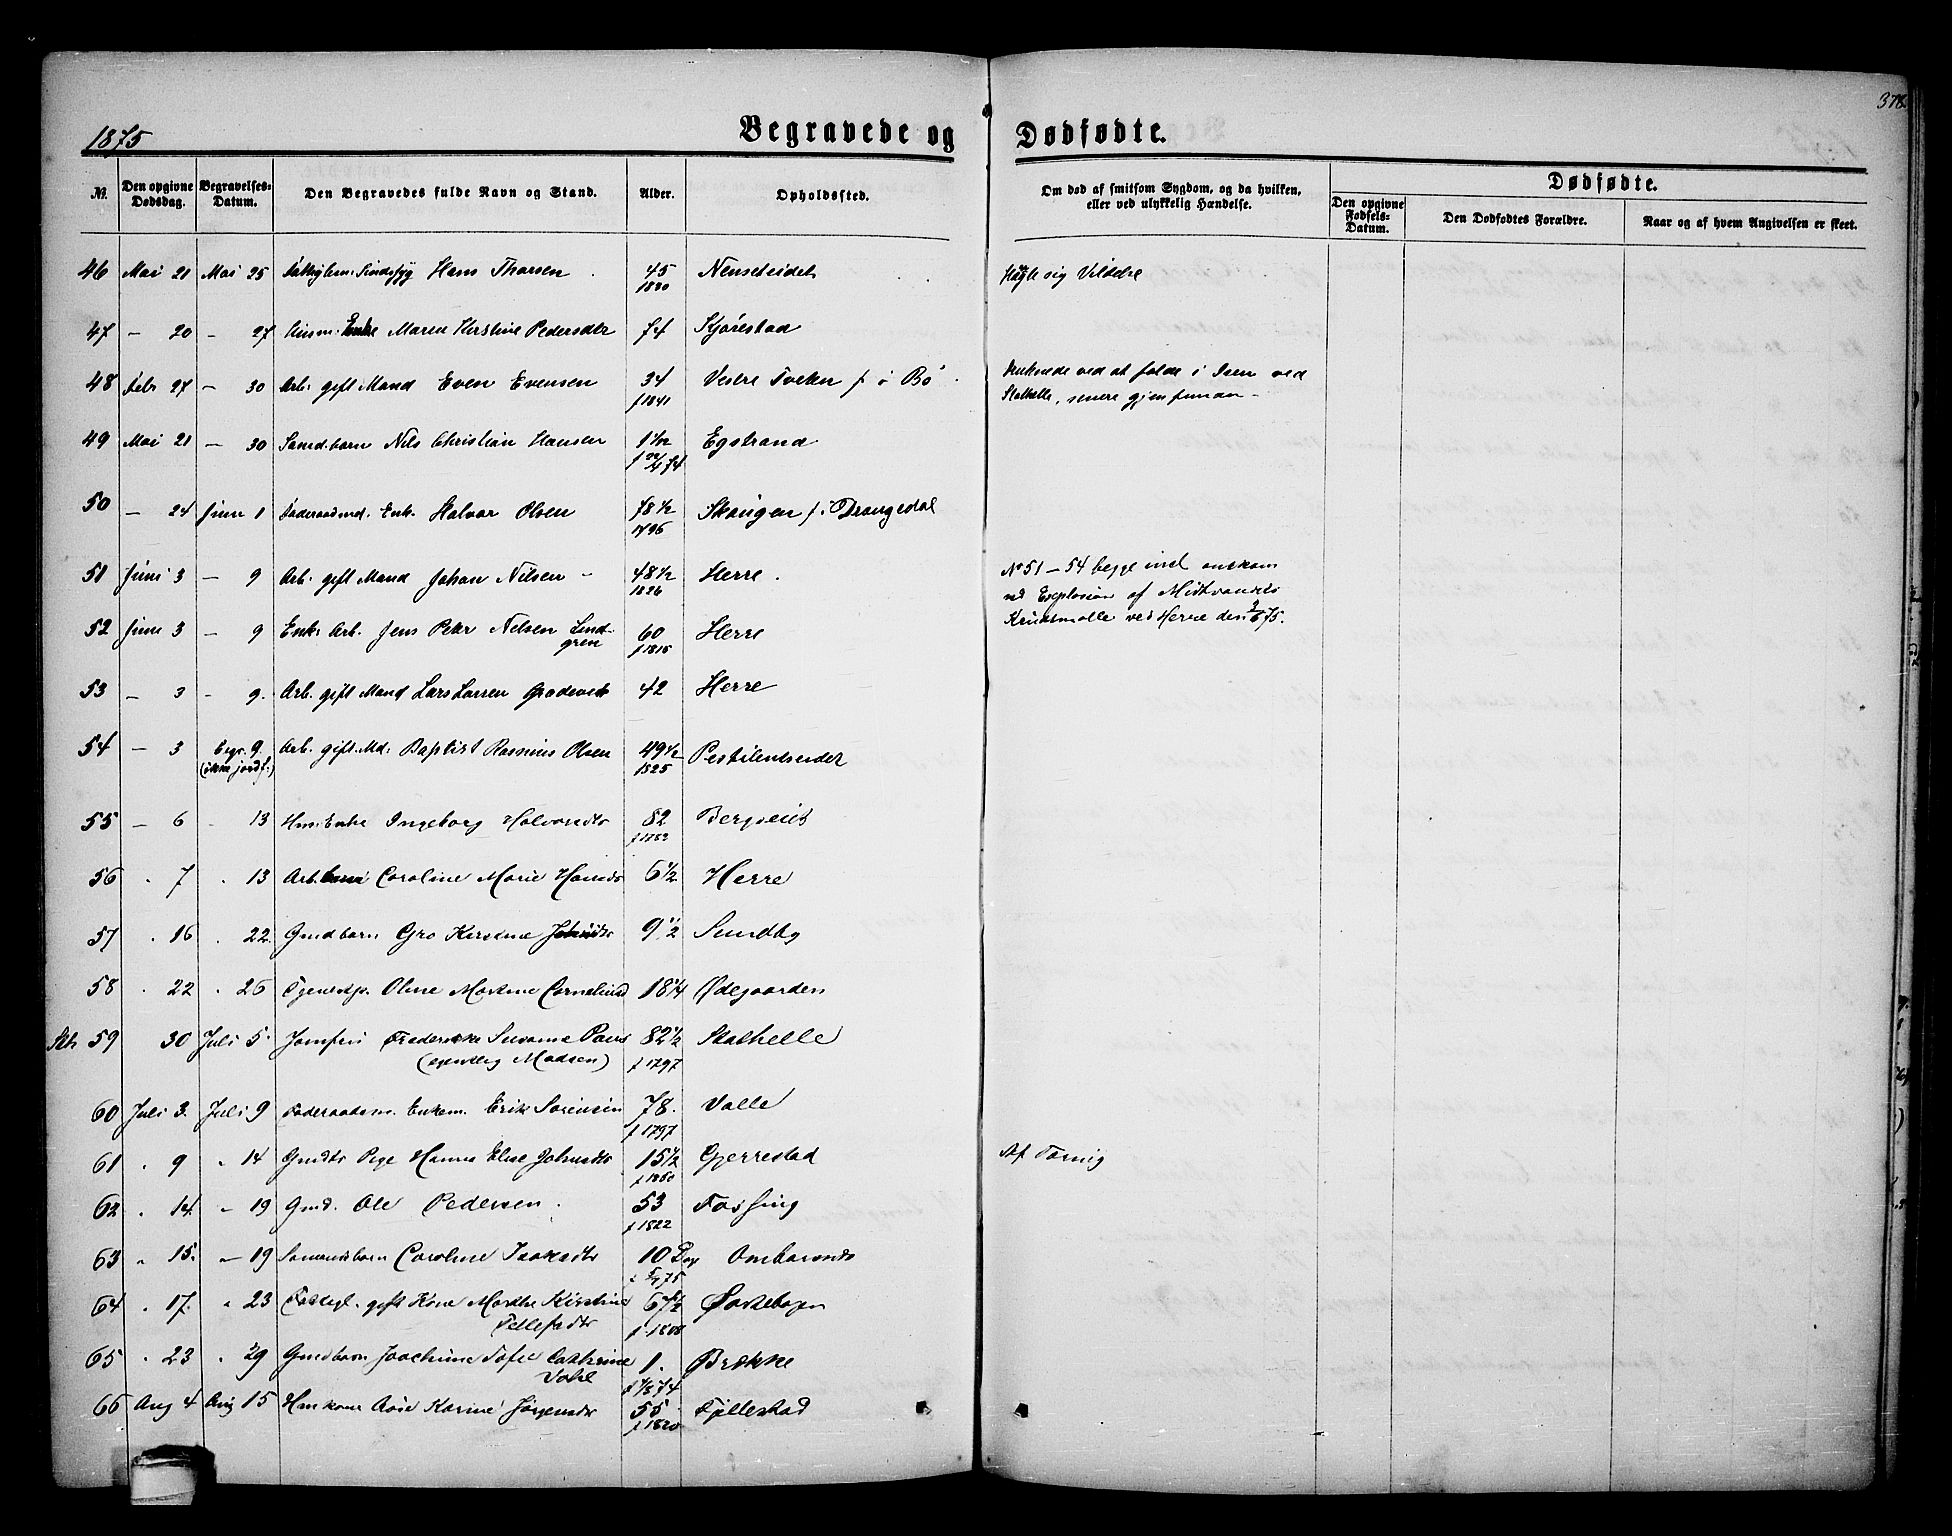 378.
1875
Begravede og Dødfødte.
No. Den opgivne Dødsdag. Begravelses-Datum. Den Begravedes fulde Navn og Stand. Alder. Opholdssted. Om død af smitsom Sygdom, og da hvilken, eller ved ulykkelig Hændelse. Dødfødte.
Den opgivne Fødsels-Datum. Den Dødfødtes Forældre. Naar og af hvem Angivelsen er skeet.
46 Mai 21 Mai 25 Sindssyg Hans Thorsen 45 1830 Nenseteidet sig Vilddre
47 — 20 — 27 Husm. Enke Maren Kirstine Pedersdtr 74 Kjørestad
48 Febr 27 — 30 Arb. gift Mand Even Evensen 34 f 1841 Vestre Tveten f. i Bø Druknede ved at falde i Isen ved
Stathelle, senere gjenfunden
49 Mai 21 — 30 Sømd. barn Nils Christian Hansen 1 1/12 f 22/4 74 Egstrand
50 — 24 Juni 1 Føderaadmd. Enk. Halvor Olsen 78 1/2 1796 Skougen f. i Drangedal
51 Juni 3 — 9 Arb. gift Mand Johan Nilsen 48 1/2 1826 Herre. No 51 — 54 begge incl. omkom
ved Explosion af Midtvandets
Krudtmølle ved Herre den 3/6 75.
52 Juni 3 — 9 Enk. Arb. Jens Peter Nilsen Lind-
gren 60 f 1815 Herre
53 — 3 — 9. Arb. gift Mand Lars Larsen 42 Herre
54 — 3 begr. 9. (ikke jordf.) Arb. gift. Md. Baptist Rasmus Olsen 49 1/2 1825 Pestilentseidet
55 — 6 — 13 Hm. Enke Ingeborg Halvorsdtr 82 f 1782 Bergseid
56 " 7 " 13 Arb. barn Caroline Marie Hansdtr 6 1/2 Herre
57 " 16 " 22 Gmdbarn Gro Kirstine Johnsdtr 9 1/2 Sundby
58 " 22 " 26 Tjenestp. Oline Martine Corneliusd 18 1/4 Ødegaarden
Sth 59 30 Juli 5 Jomfru Frederikke Susanne Paus
(egentlig Madsen) 82 1/2 f 1797 Stathelle
60 Juli 3. Juli 9 Føderaadsm. Enkem. Erik Sørensen 78. f 1797 Valle
61 " 9 " 14 Gmdts Pige Hanna Elise Johnsdtr 15 1/2 f 1860 Gjerrestad Af Tæring
62 " 14. " 19 Gmd. Ole Pedersen 53 f 1822 Fossing
63 " 15. — 19 Sømandsbarn Caroline Isaksdtr 10 Dag f 5/7 75 Ombarsnes
64 " 17. " 23 gift Kone Marthe Kirstine
Tellefsdtr 67 1/2 f 1808
65 " 23 " 29 Gmdbarn Joachime Tofie Cathrine
Vahl 1. f 7/8 74 Brække
66 Aug 4 Aug 15 Hmkone Aase Karine Jørgensdtr 55 f 1820 Tjillestad